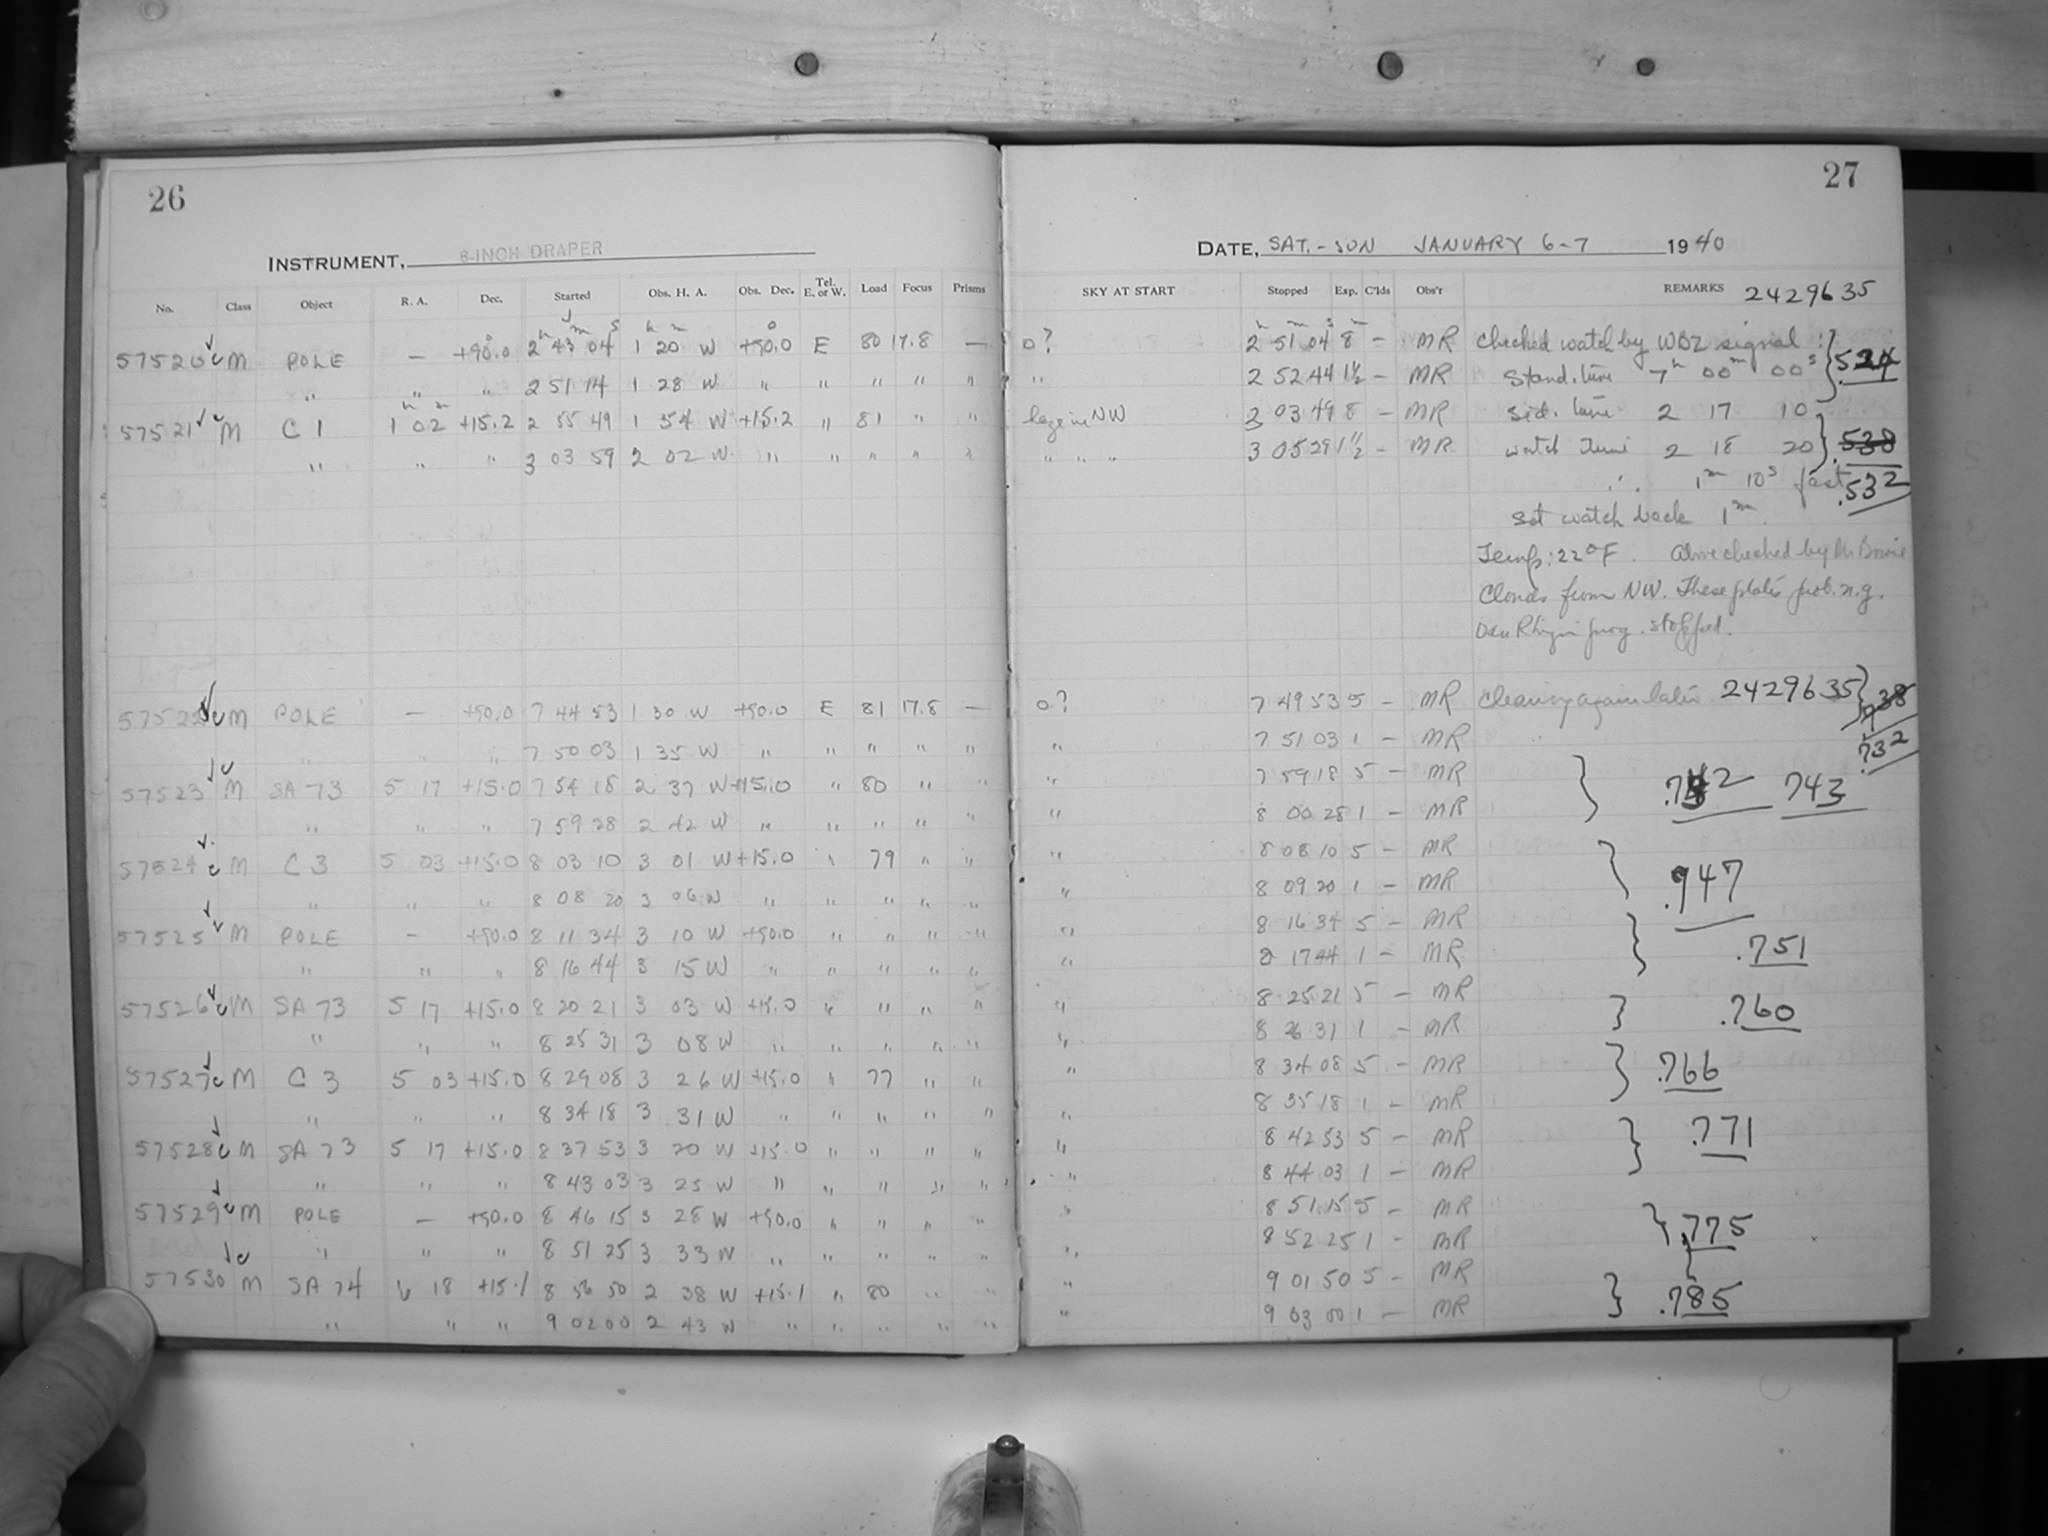 26
INSTRUMENT, 8-INCH DRAPER
No. Class Object R. A. Dec. Started Obs. H. A. Obs. Dec. Tel. E. or W. Load Focus Prisms
57520 M POLE — +90.0 2 43 04 1 20 W +90.0 E 80 17.8 —
" " " 2 51 14 1 28 W " " " " "
57521 M C 1 1 02 +15.2 2 55 49 1 54 W +15.2 " 81 " "
" " " 3 03 59 2 02 W " " " " "
57522 M POLE — +90.0 7 44 53 1 30 W +90.0 E 81 17.8 —
" " " 7 50 03 1 35 W " " " " "
57523 M SA 73 5 17 +15.0 7 54 18 2 37 W +15.0 " 80 " "
" " " 7 59 28 2 42 W " " " " "
57524 M C 3 5 03 +15.0 8 03 10 3 01 W +15.0 " 79 " "
" " " 8 08 20 3 06 W " " " " "
57525 M POLE — +90.0 8 11 34 3 10 W +90.0 " " " "
" " " 8 16 44 3 15 W " " " " "
57526 M SA 73 5 17 +15.0 8 20 21 3 03 W +15.0 " " " "
" " " 8 25 31 3 08 W " " " " "
57527 M C 3 5 03 +15.0 8 29 08 3 26 W +15.0 " 77 " "
" " " 8 34 18 3 31 W " " " " "
57528 M SA 73 5 17 +15.0 8 37 53 3 20 W +15.0 " " " "
" " " 8 43 03 3 25 W " " " " "
57529 M POLE — +90.0 8 46 15 3 28 W +90.0 " " " "
" " " 8 51 25 3 33 W " " " " "
57530 M SA 74 6 18 +15.1 8 56 50 2 38 W +15.1 " 80 " "
" " " 9 02 00 2 43 W " " " " "
27
DATE, SAT.-SUN JANUARY 6-7 1940
SKY AT START Stopped Exp. C'lds Obs'r REMARKS 2429635
0? 2 51 04 8 — MR Checked watch by WBZ signal :
" 2 52 44 1½ — MR Stand. time 7h 00m 00s .524
haze in NW 3 03 49 8 — MR Sid. time 2 17 10
" " " 3 05 29 1½ — MR watch time 2 18 20 .538
∴ 1m 10s fast .532
Set watch back 1m.
Temp: 22°F. Above checked by Mr
Clouds from NW. These plates prob. n.g.
prog. stopped.
0? 7 49 53 5 — MR Clearing again later 2429635 .738
" 7 51 03 1 — MR .732
" 7 59 18 5 — MR .742 743
" 8 00 28 1 — MR
" 8 08 10 5 — MR .947
" 8 09 20 1 — MR
" 8 16 34 5 — MR .751
" 8 17 44 1 — MR
" 8 25 21 5 — MR .760
" 8 26 31 1 — MR
" 8 34 08 5 — MR .766
" 8 35 18 1 — MR
" 8 42 53 5 — MR .771
" 8 44 03 1 — MR
" 8 51 15 5 — MR .775
" 8 52 25 1 — MR
" 9 01 50 5 — MR .785
" 9 03 00 1 — MR